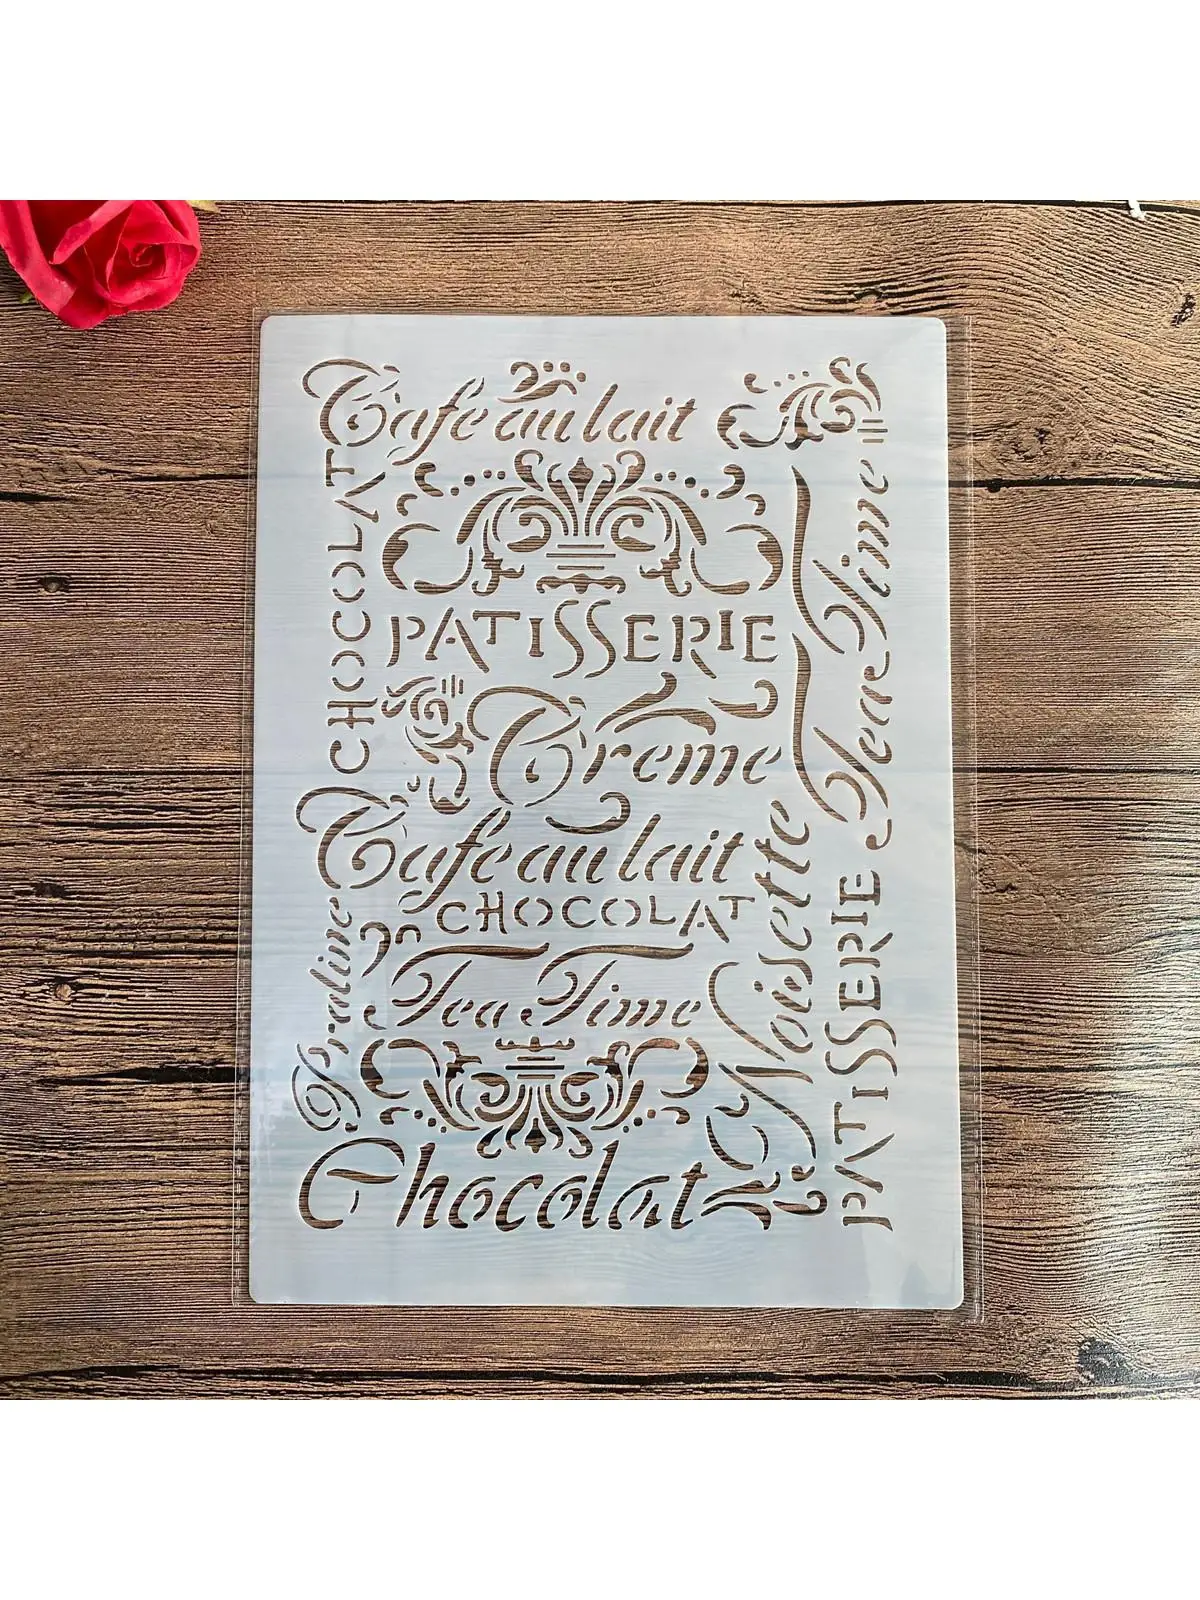 Cafe au lait
CHOCOLAT
PATISSERIE
Creme
Tea Time
Cafe au lait
CHOCOLAT
Noisette
Praline
Tea Time
PATISSERIE
Chocolat